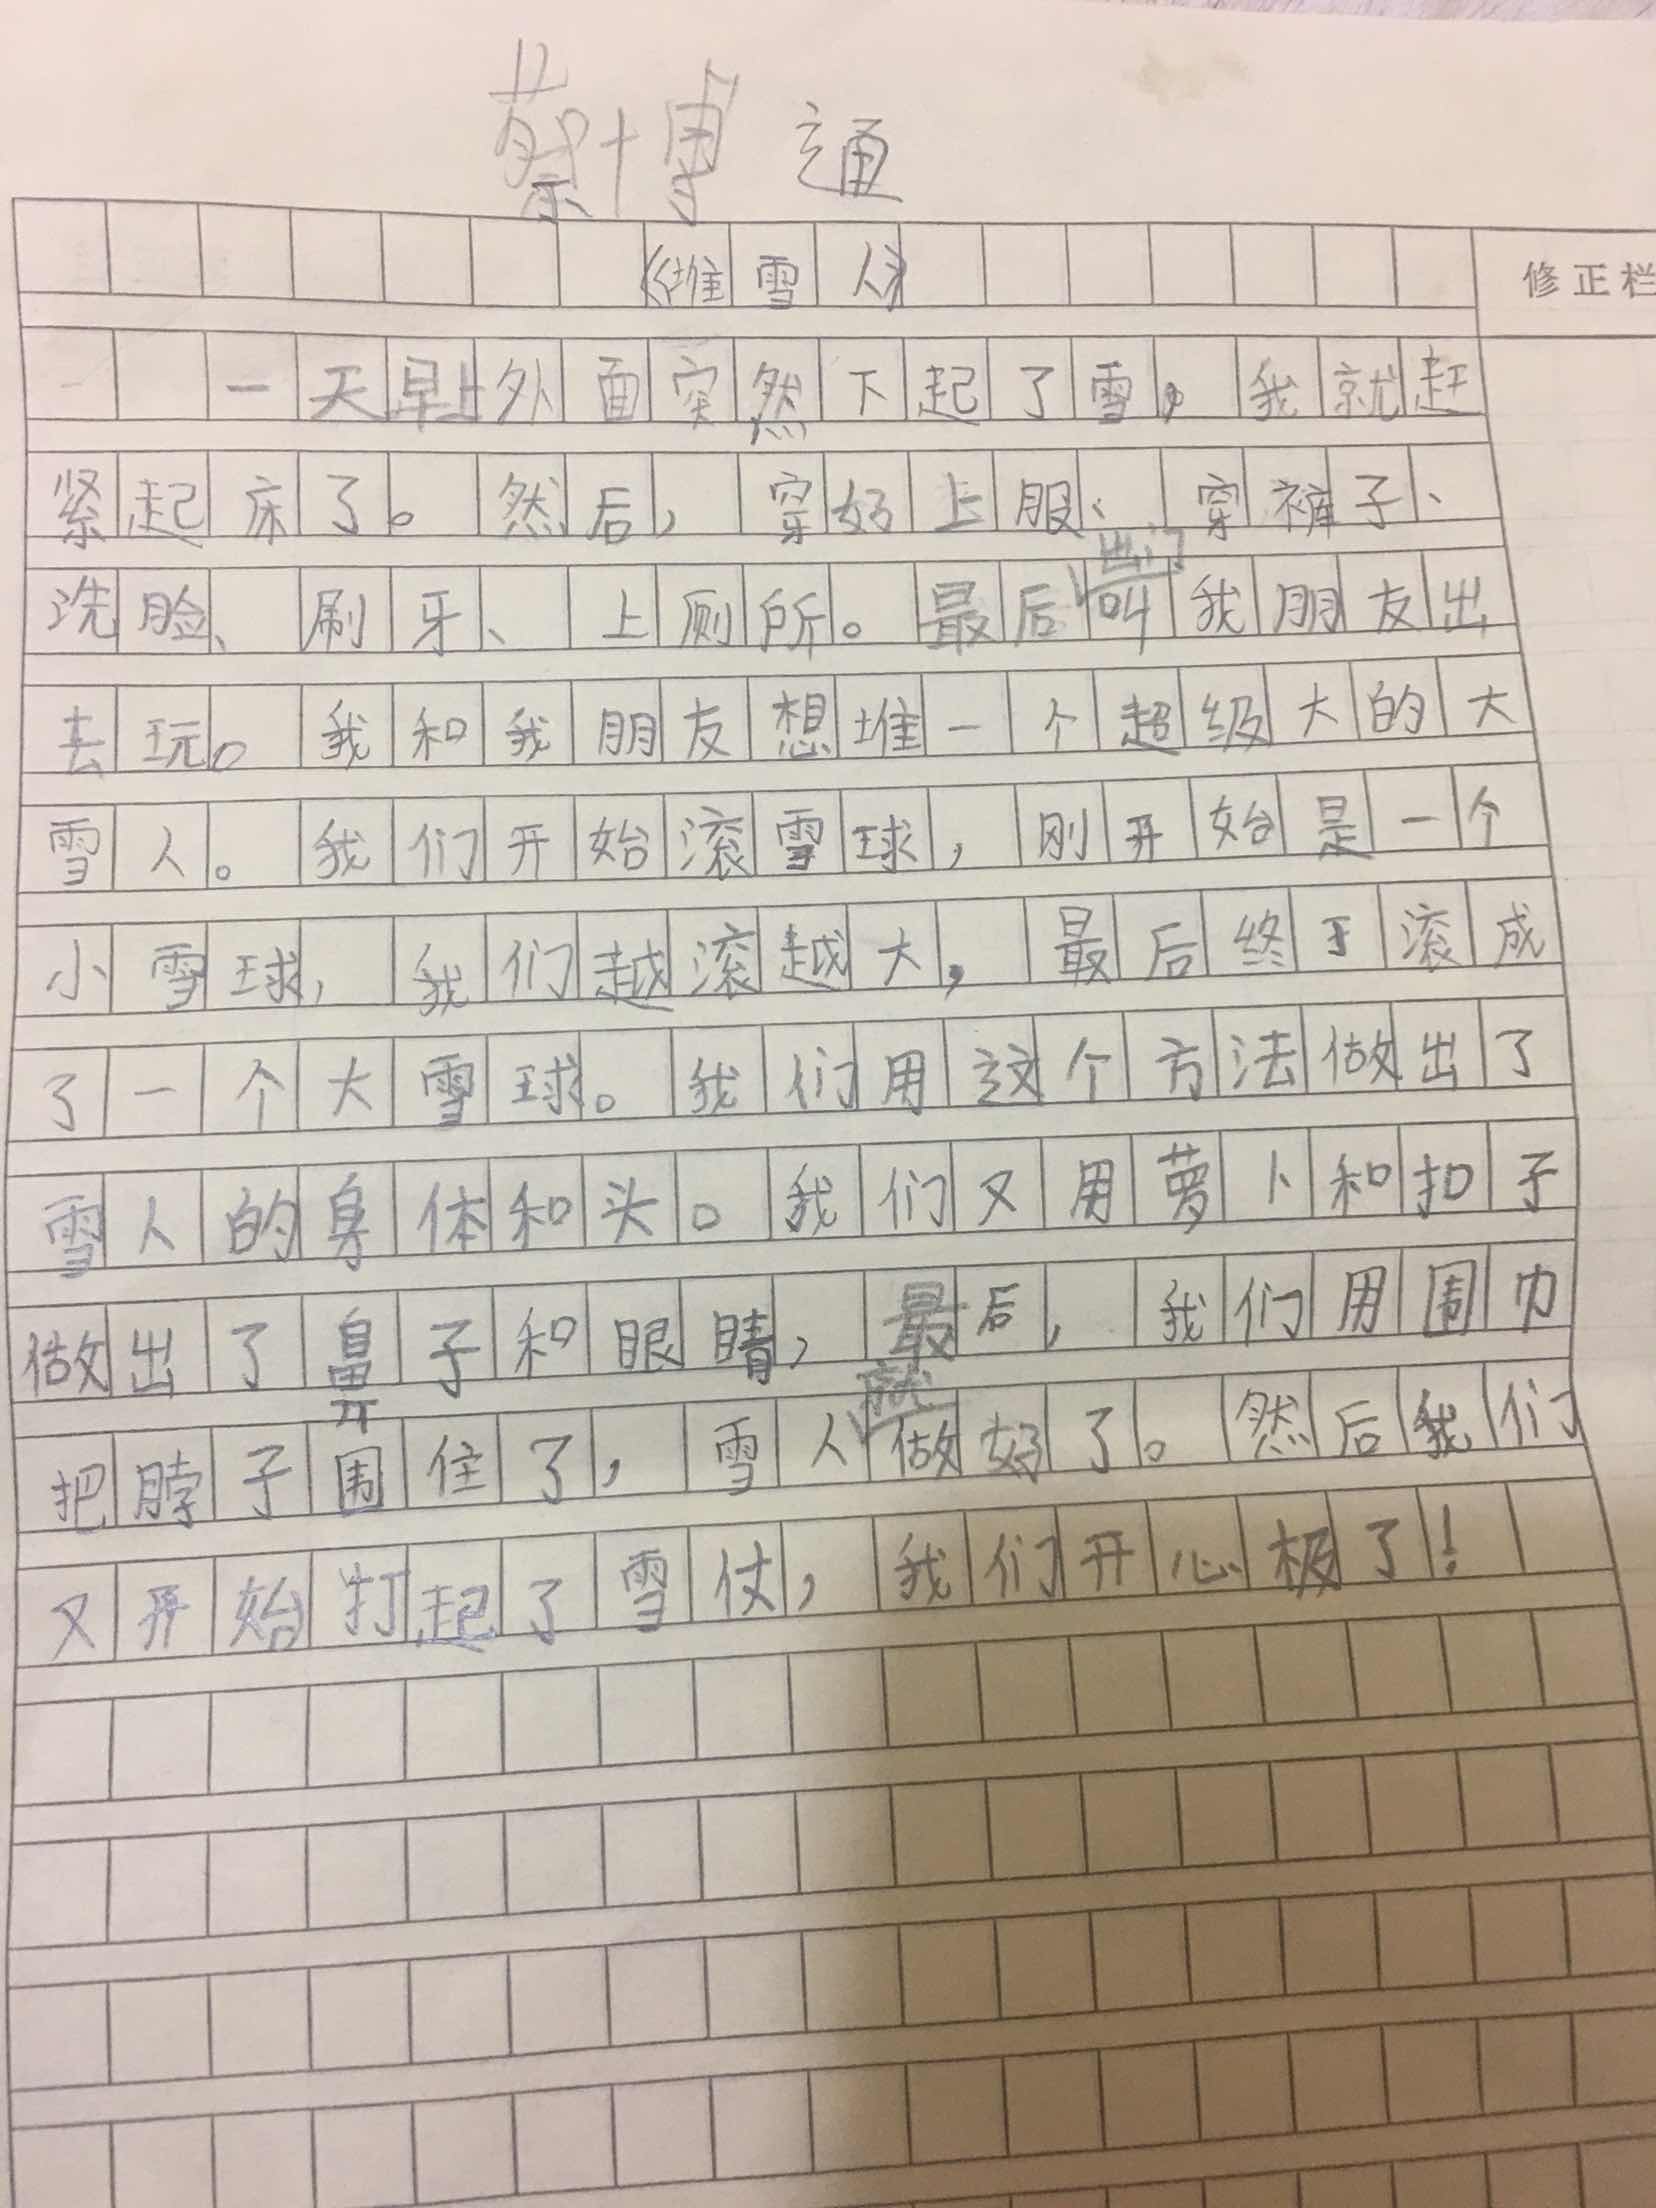 蔡博通
《堆雪人》
修正栏
一天早上外面突然下起了雪，我就赶
紧起床了。然后，穿好上服、穿裤子、
洗脸、刷牙、上厕所。最后出门叫我朋友出
去玩。我和我朋友想堆一个超级大的大
雪人。我们开始滚雪球，刚开始是一个
小雪球，我们越滚越大，最后终于滚成
了一个大雪球。我们用这个方法做出了
雪人的身体和头。我们又用萝卜和扣子
做出了鼻子和眼睛，最后，我们用围巾
把脖子围住了，雪人就做好了。然后我们
又开始打起了雪仗，我们开心极了！